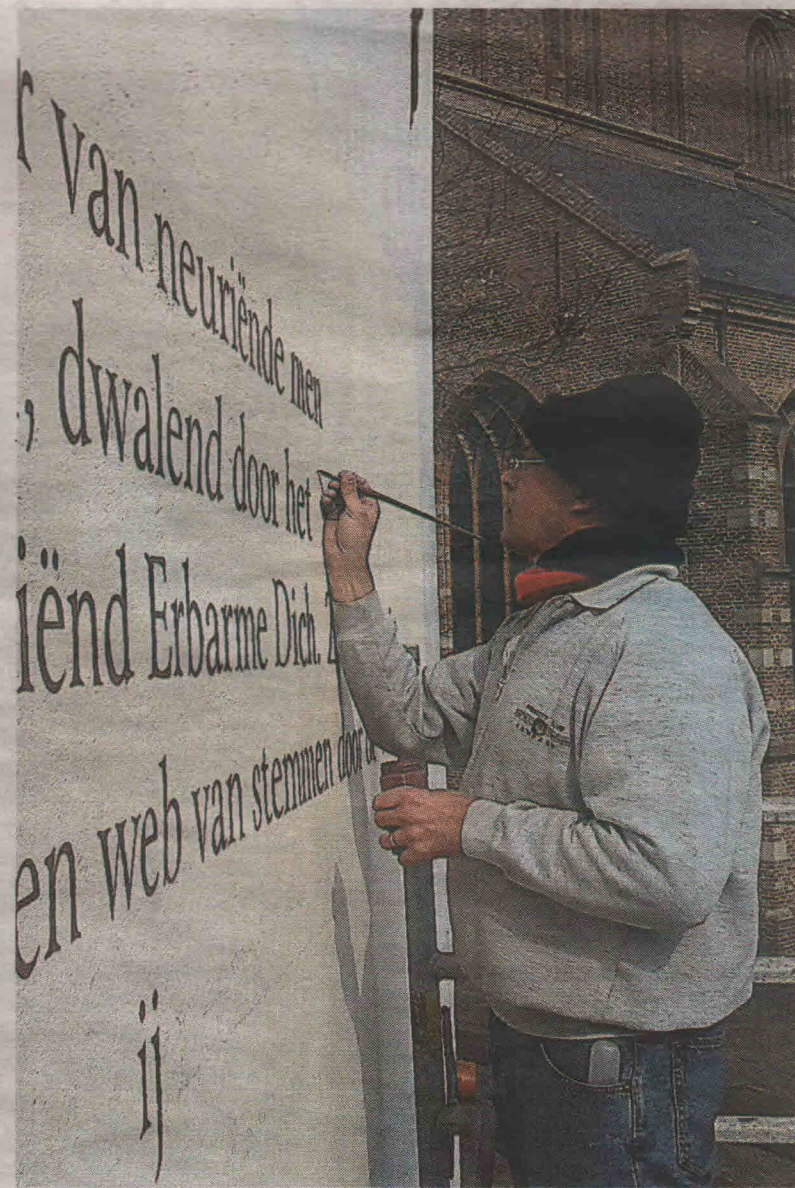 r van neuriënde men
, dwalend door het
iënd Erbarme Dich.
en web van stemmen door
ij